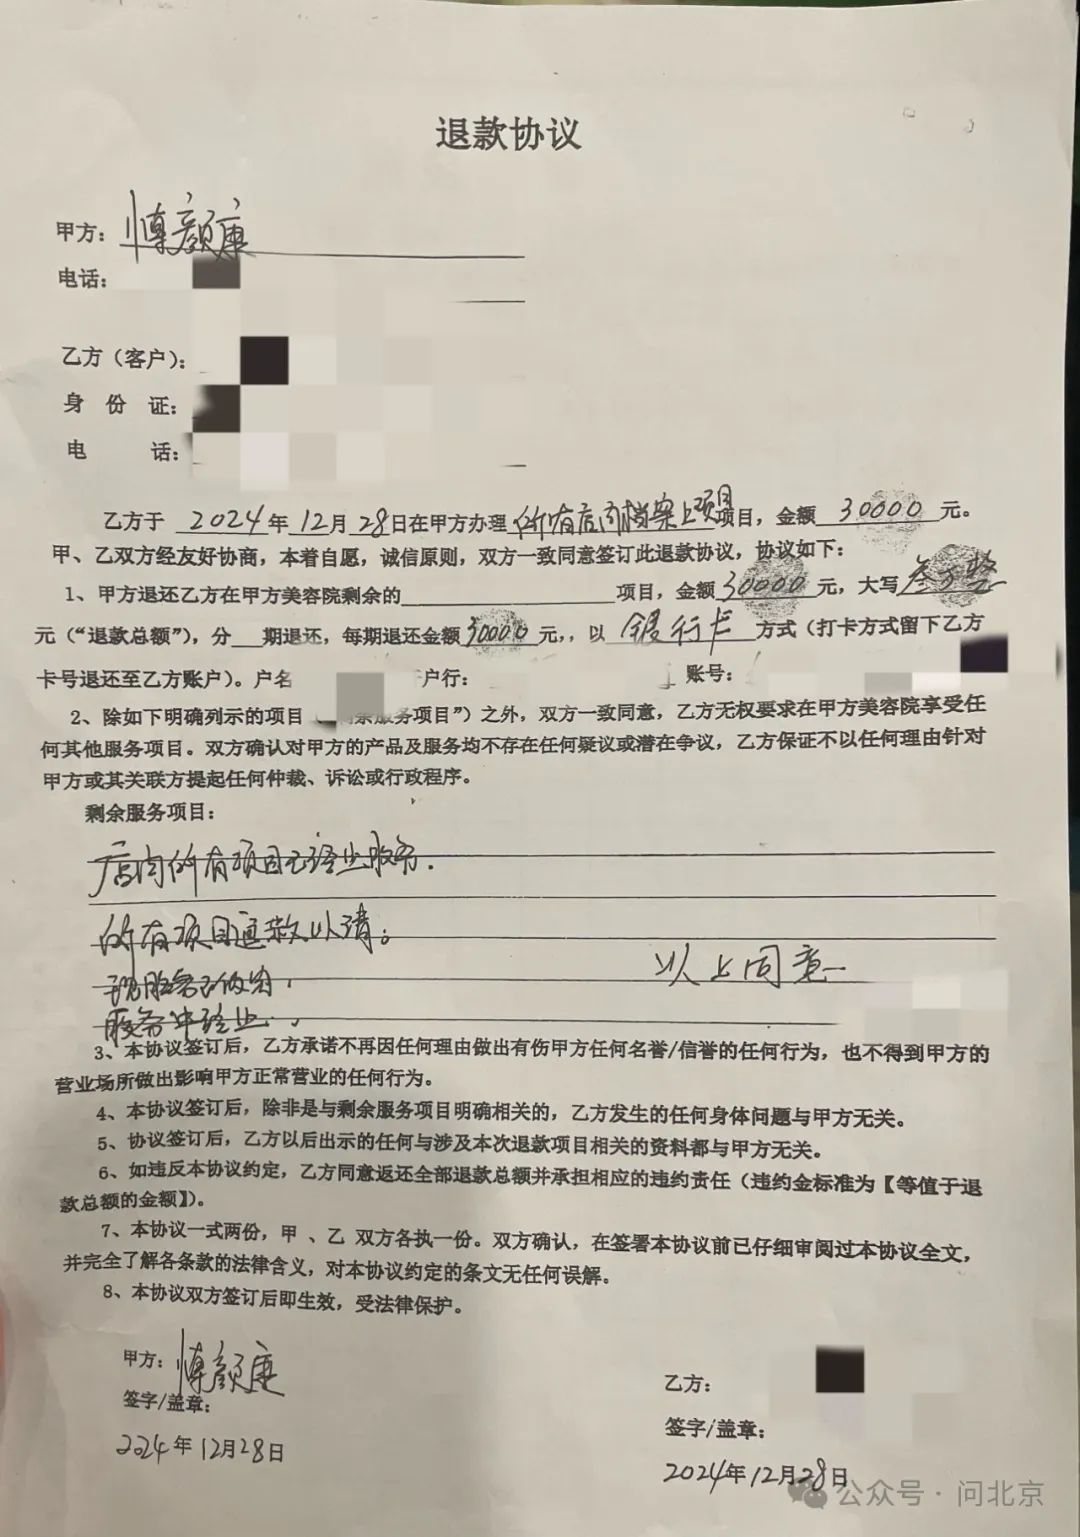 退款协议
甲方：博颜康
电话：
乙方（客户）：
身 份 证：
电 话：
乙方于 2024年 12月 28日在甲方办理 所有店内档案上项目项目，金额 30000 元。
甲、乙双方经友好协商，本着自愿，诚信原则，双方一致同意签订此退款协议，协议如下：
1、甲方退还乙方在甲方美容院剩余的 项目，金额30000元，大写叁万整
元（“退款总额”），分 期退还，每期退还金额30000元，，以 银行卡 方式（打卡方式留下乙方
卡号退还至乙方账户）。户名 户行： 账号：
2、除如下明确列示的项目（ 余服务项目”）之外，双方一致同意，乙方无权要求在甲方美容院享受任
何其他服务项目。双方确认对甲方的产品及服务均不存在任何疑议或潜在争议，乙方保证不以任何理由针对
甲方或其关联方提起任何仲裁、诉讼或行政程序。
剩余服务项目：
店内所有项目已终止服务．
所有项目退款以清；
以上同意
服务 终止．
3、本协议签订后，乙方承诺不再因任何理由做出有伤甲方任何名誉/信誉的任何行为，也不得到甲方的
营业场所做出影响甲方正常营业的任何行为。
4、本协议签订后，除非是与剩余服务项目明确相关的，乙方发生的任何身体问题与甲方无关。
5、协议签订后，乙方以后出示的任何与涉及本次退款项目相关的资料都与甲方无关。
6、如违反本协议约定，乙方同意返还全部退款总额并承担相应的违约责任（违约金标准为【等值于退
款总额的金额】）。
7、本协议一式两份，甲 、乙 双方各执一份。双方确认，在签署本协议前已仔细审阅过本协议全文，
并完全了解各条款的法律含义，对本协议约定的条文无任何误解。
8、本协议双方签订后即生效，受法律保护。
甲方：博颜康
签字/盖章：
2024年12月28日
乙方：
签字/盖章：
2024年12月28日
公众号·问北京